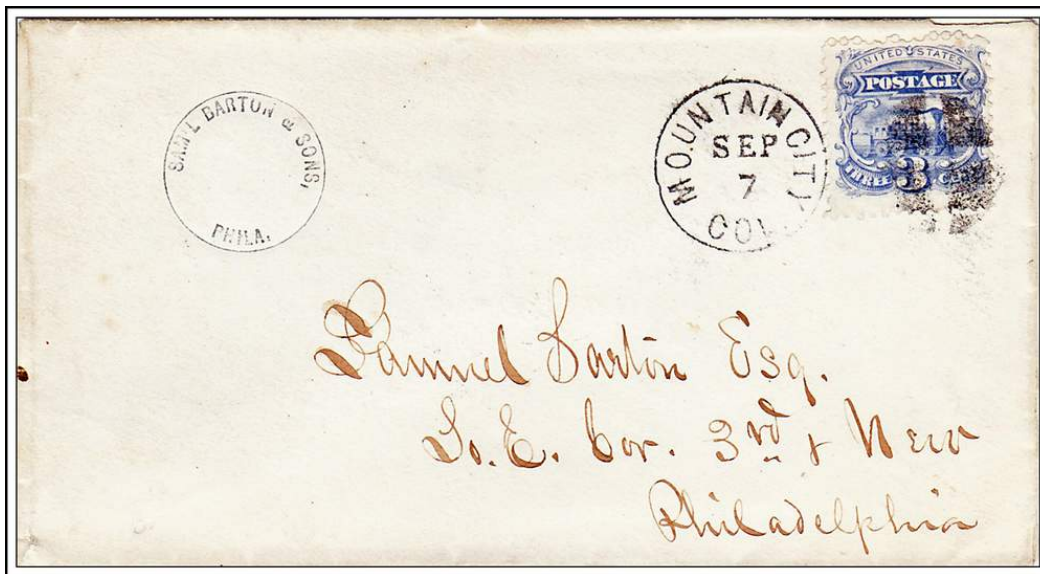 SAM'L BARTON & SONS,
PHILA.
MOUNTAIN CITY
SEP
7
COL
UNITED STATES
POSTAGE
THREE 3 CENTS
Samuel Barton Esq.
So. E. Cor. 3rd & New
Philadelphia